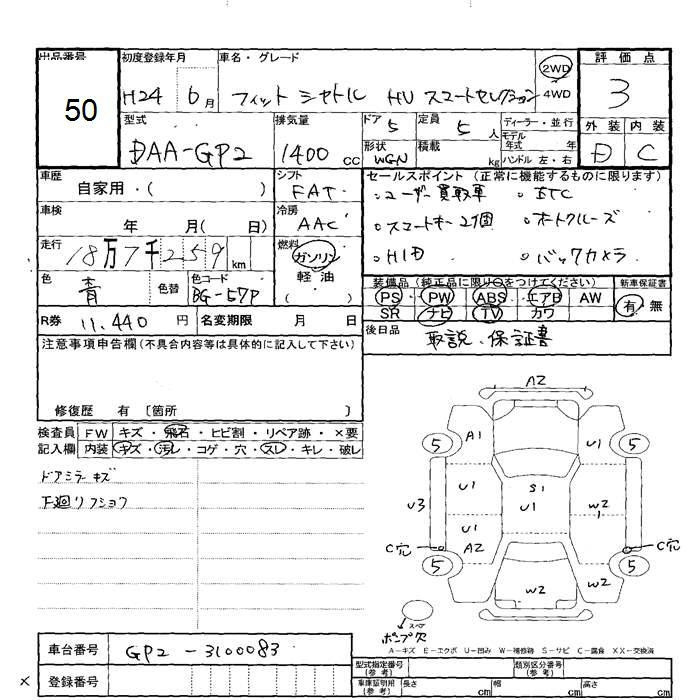 出品番号 初度登録年月 車名・グレード 評価点
50 H24 6月 フィット シャトル HV スマートセレクション 2WD 4WD 3
型式 排気量 ドア 5 定員 5人 ディーラー・並行 外装 内装
DAA-GP2 1400 cc 形状 WGN 積載 kg モデル年式 年 ハンドル 左・右 D C
車歴 シフト セールスポイント (正常に機能するものに限ります)
自家用・( ) FAT ・ユーザー買取車 ・ETC
車検 冷房 ・スマートキー2個 ・オートクルーズ
年 月( 日) AAC ・HID ・バックカメラ
走行 燃料
18万7千259km ガソリン
色 色替 色コード 軽油 装備品 (純正品に限り○をつけてください) 新車保証書
青 BG-57P ( ) PS・PW・ABS・エアB AW 有・無
R券 11,440円 名変期限 月 日 SR ナビ TV カワ
注意事項申告欄(不具合内容等は具体的に記入して下さい) 後日品 取説、保証書
修復歴 有 〔箇所 〕
検査員 FW キズ・飛石・ヒビ割・リペア跡・×要
記入欄 内装 キズ・汚レ・コゲ・穴・スレ・キレ・破レ
ドアミラーキズ
下廻リフショク
A2
5 A1 U1 5
U1 S1
U3 U1 W2
U1
C穴 A2 C穴
5 W2 W2 5
スペア
ポンプ欠
A－キズ E－エクボ U－凹み W－補修跡 S－サビ C－腐食 XX－交換済
車台番号 GP2-3100083
× 登録番号
型式指定番号(参考) 類別区分番号(参考)
車庫証明用(参考) 長さ cm 幅 cm 高さ cm